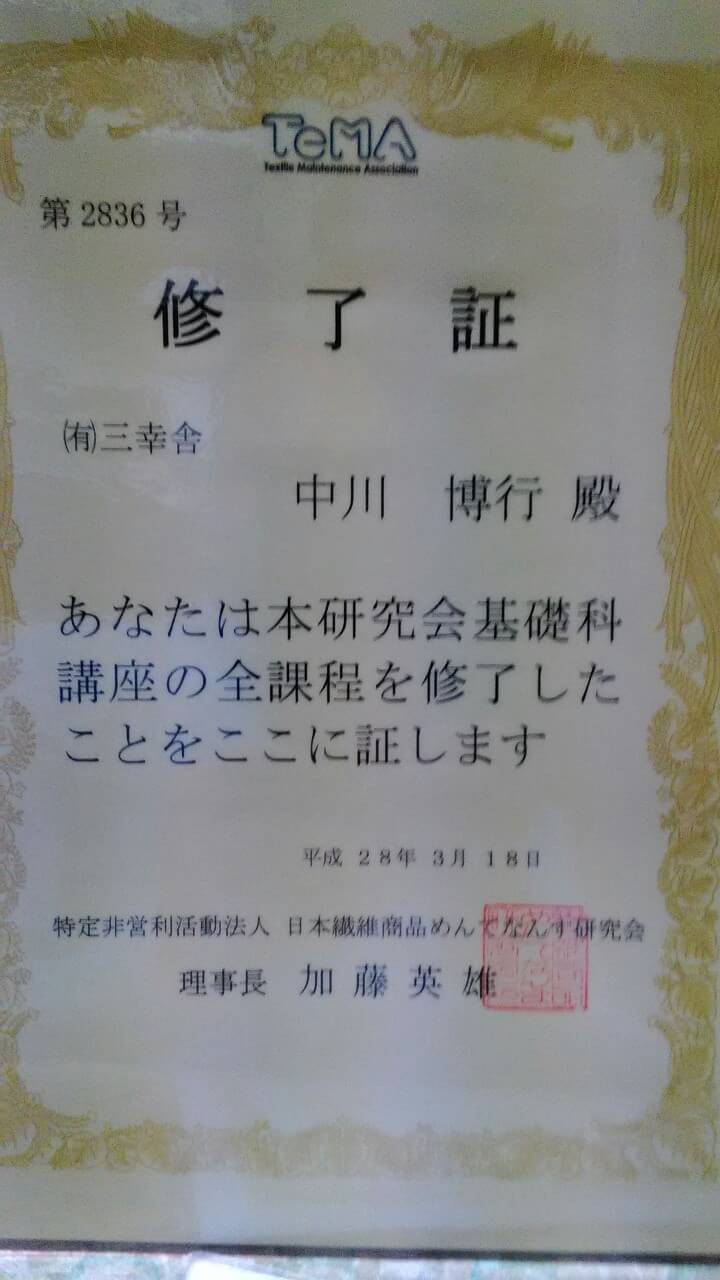 TeMA
Textile Maintenance Association
第2836号
修了証
㈲三幸舎
中川 博行 殿
あなたは本研究会基礎科
講座の全課程を修了した
ことをここに証します
平成 28年 3月 18日
特定非営利活動法人 日本繊維商品めんてなんす研究会
理事長 加藤英雄